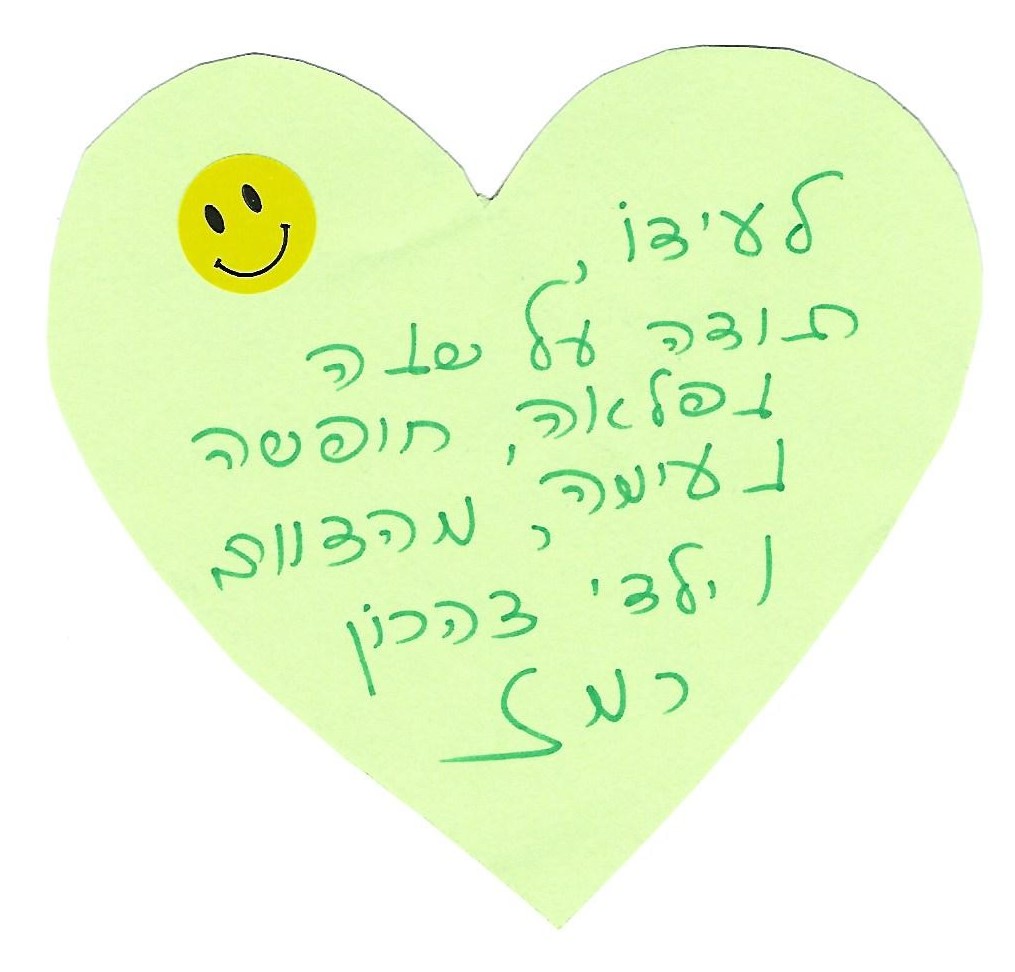 לעידו,
תודה על שנה
נפלאה, חופשה
נעימה, מהצוות
וילדי צהרון
רמז